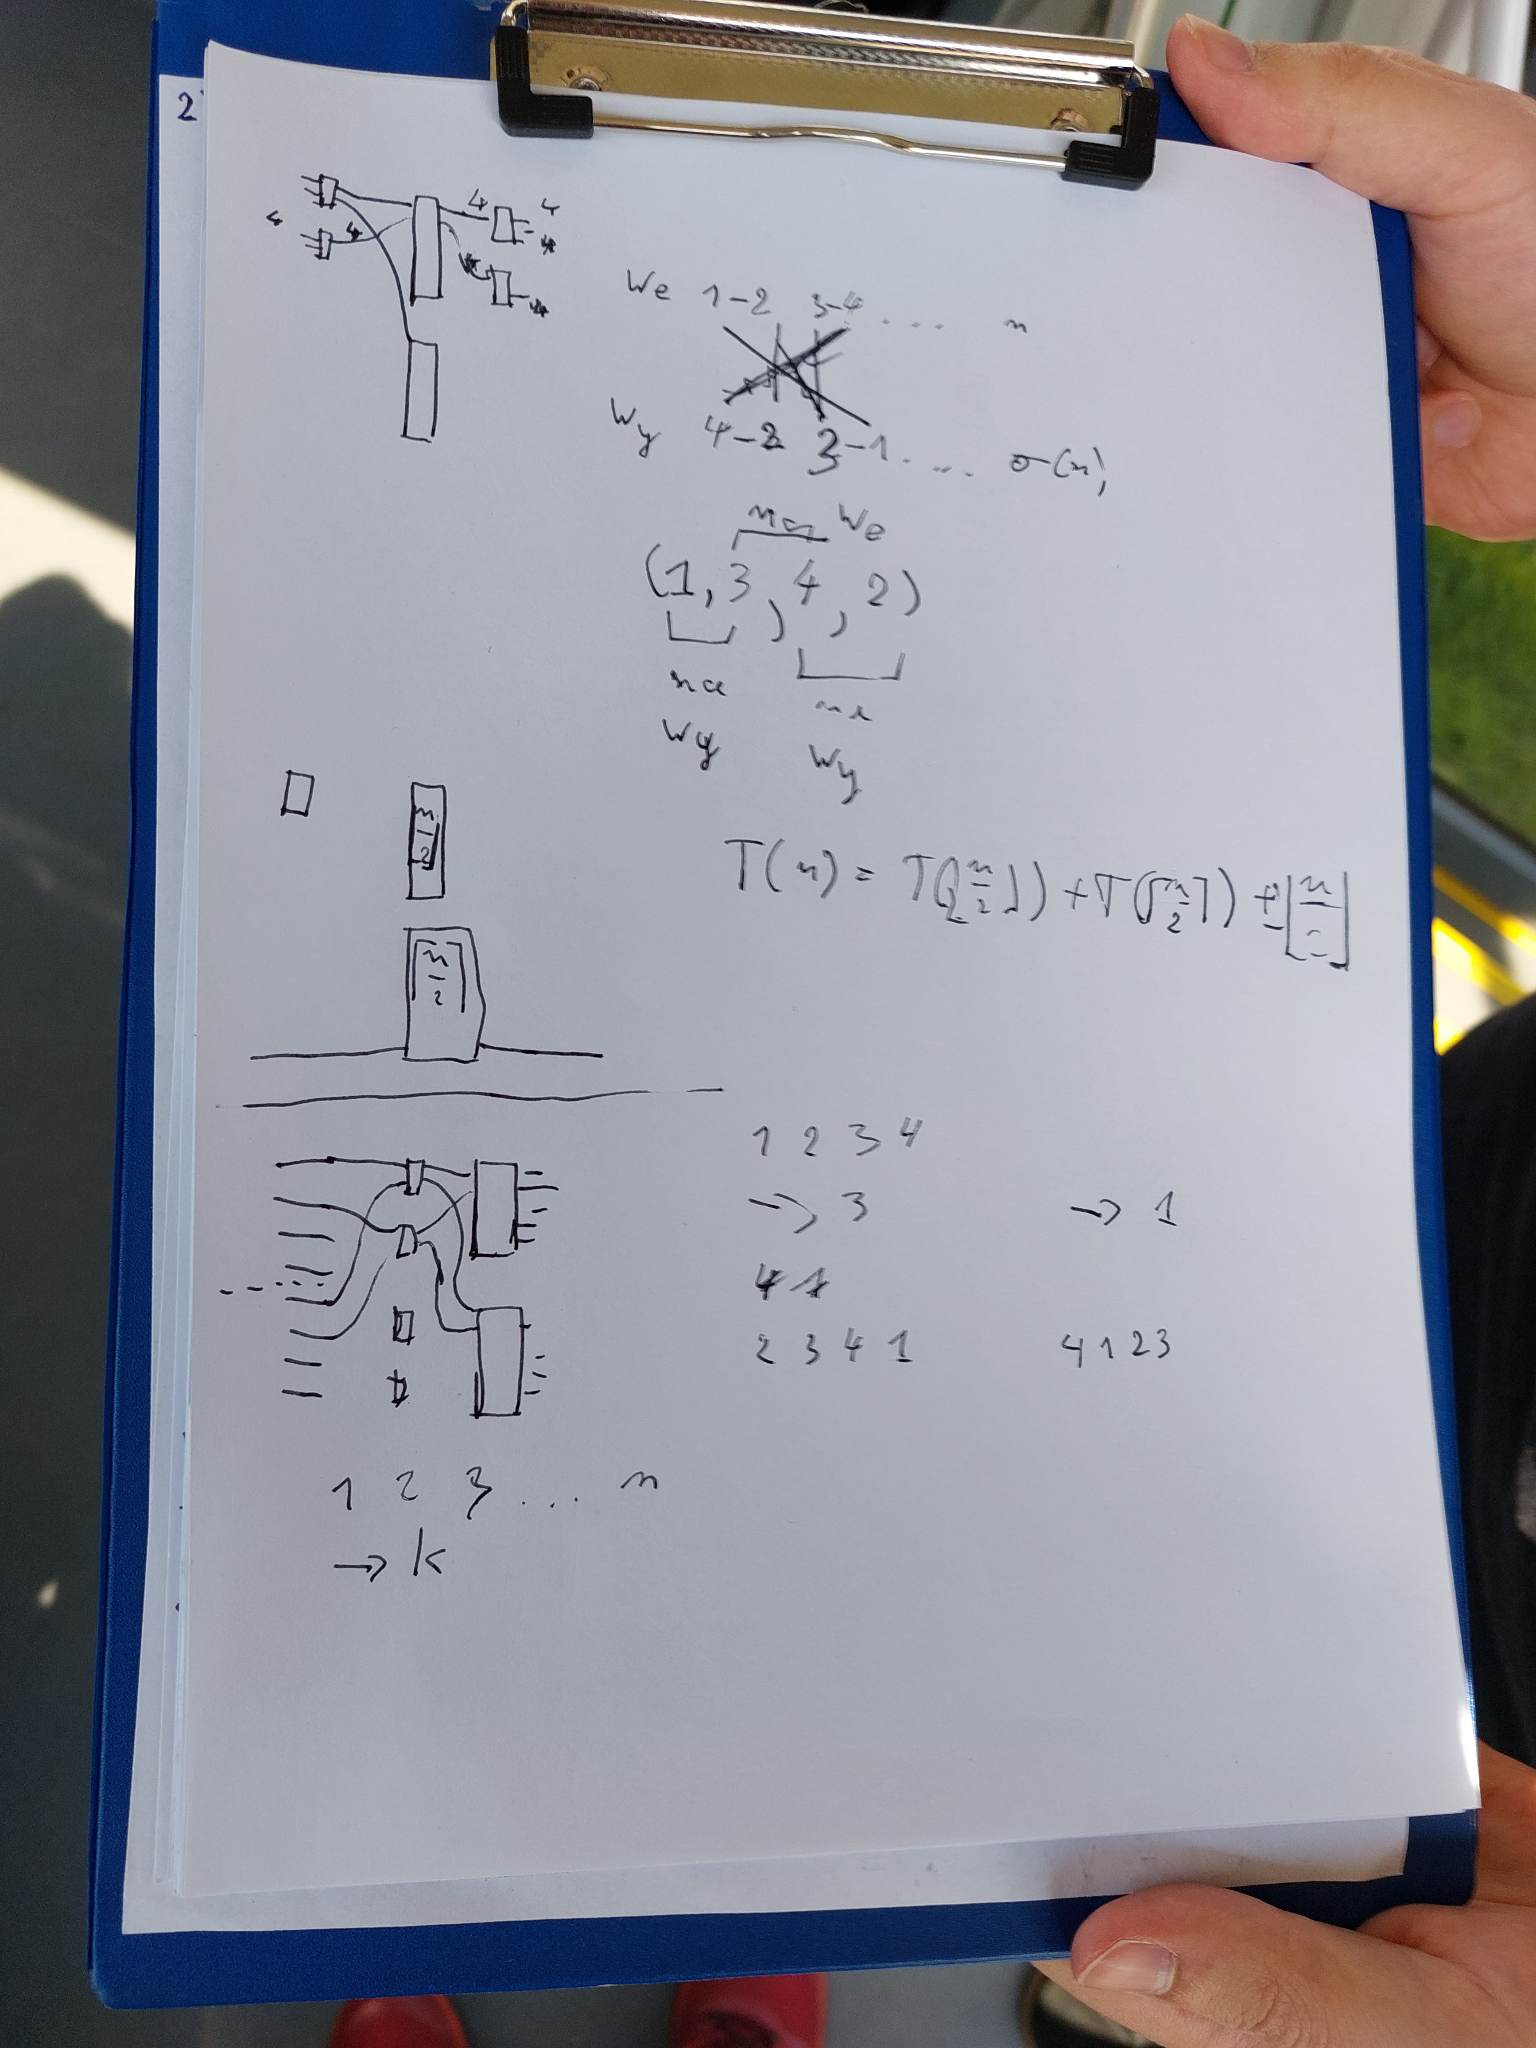 2
4 4
4 4
We 1-2 3-4 .... n
Wy 4-2 3-1 .... σ(n),
na We
(1, 3, 4, 2)
na na
Wy Wy
n/2
T(n) = T(⌊n/2⌋) + T(⌈n/2⌉) +
⌈n/2⌉
1 2 3 4
→ 3 → 1
4 1
2 3 4 1 4 1 2 3
1 2 3 ... n
→ k